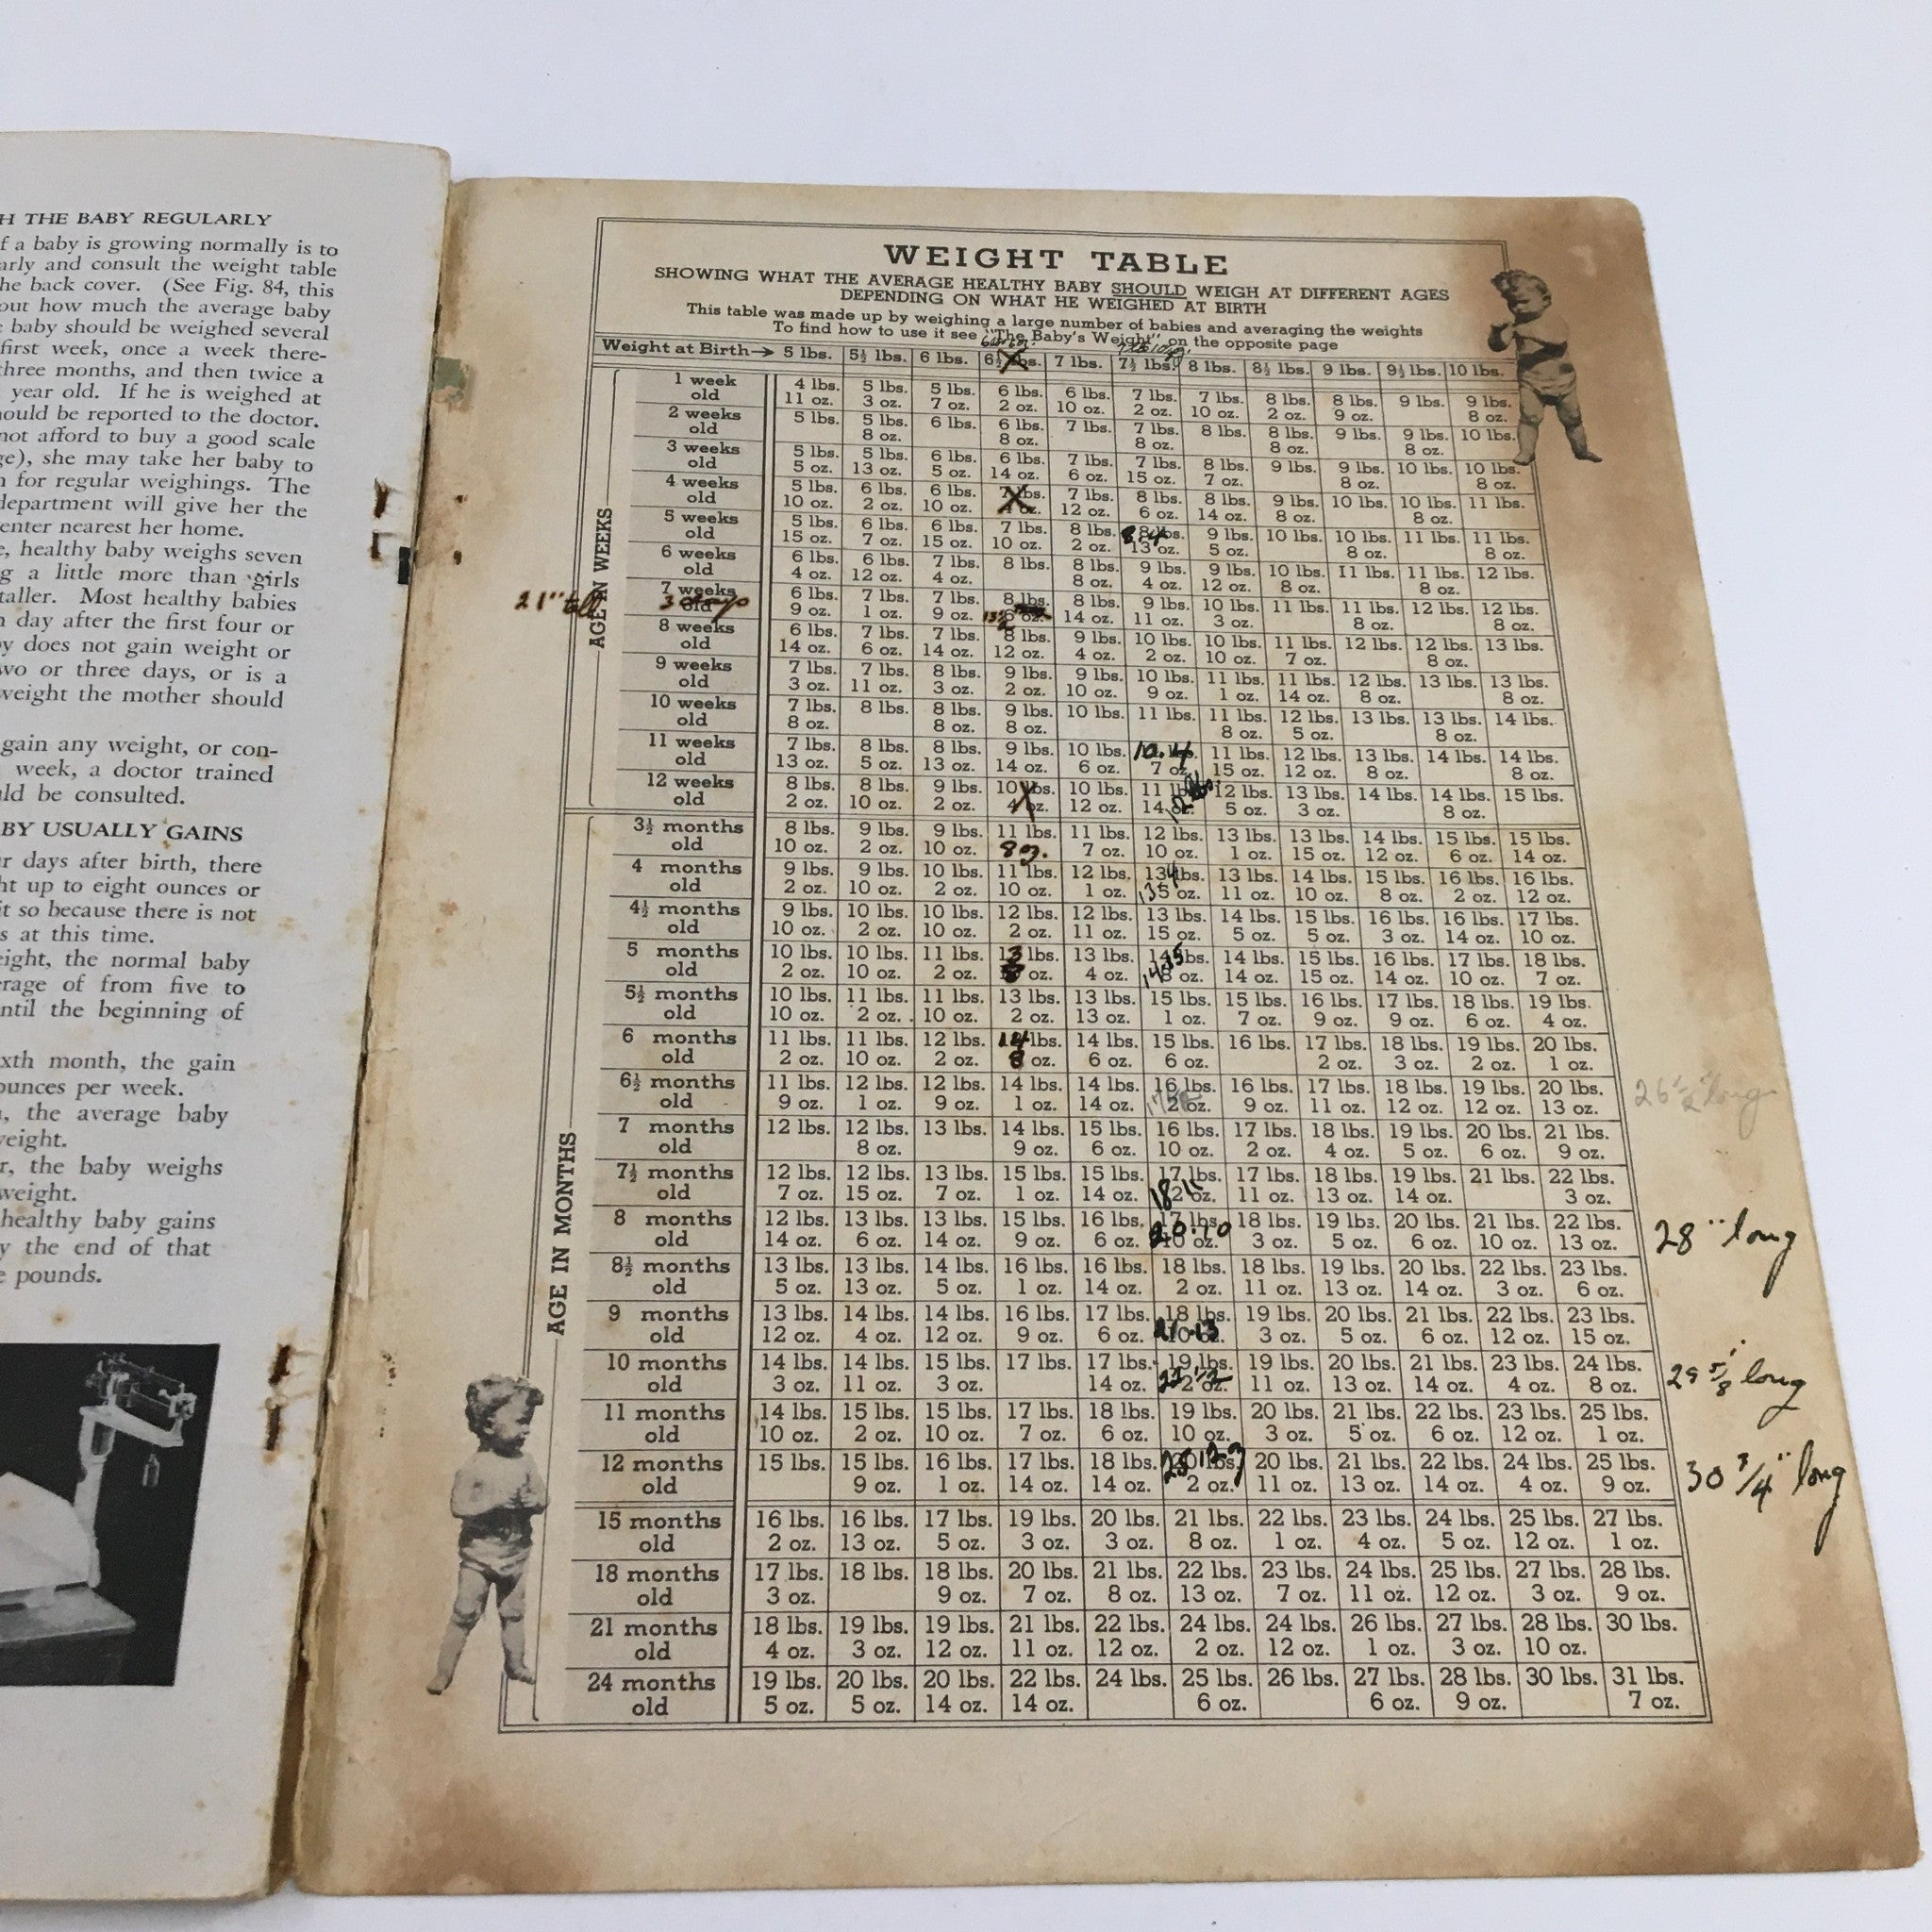 H THE BABY REGULARLY
f a baby is growing normally is to
arly and consult the weight table
he back cover. (See Fig. 84, this
out how much the average baby
baby should be weighed several
first week, once a week there-
three months, and then twice a
year old. If he is weighed at
ould be reported to the doctor.
not afford to buy a good scale
ge), she may take her baby to
n for regular weighings. The
department will give her the
enter nearest her home.
e, healthy baby weighs seven
g a little more than girls
taller. Most healthy babies
n day after the first four or
y does not gain weight or
wo or three days, or is a
weight the mother should
gain any weight, or con-
week, a doctor trained
ld be consulted.
BY USUALLY GAINS
r days after birth, there
ht up to eight ounces or
it so because there is not
s at this time.
eight, the normal baby
erage of from five to
ntil the beginning of
xth month, the gain
ounces per week.
, the average baby
weight.
r, the baby weighs
weight.
healthy baby gains
y the end of that
e pounds.
WEIGHT TABLE
SHOWING WHAT THE AVERAGE HEALTHY BABY SHOULD WEIGH AT DIFFERENT AGES
DEPENDING ON WHAT HE WEIGHED AT BIRTH
This table was made up by weighing a large number of babies and averaging the weights
To find how to use it see "The Baby's Weight" on the opposite page
Weight at Birth→ 5 lbs. 5½ lbs. 6 lbs. 6½ lbs. 7 lbs. 7½ lbs. 8 lbs. 8½ lbs. 9 lbs. 9½ lbs. 10 lbs.
AGE IN WEEKS
1 week 4 lbs. 5 lbs. 5 lbs. 6 lbs. 6 lbs. 7 lbs. 7 lbs. 8 lbs. 8 lbs. 9 lbs. 9 lbs.
old 11 oz. 3 oz. 7 oz. 2 oz. 10 oz. 2 oz. 10 oz. 2 oz. 9 oz. 8 oz.
2 weeks 5 lbs. 5 lbs. 6 lbs. 6 lbs. 7 lbs. 7 lbs. 8 lbs. 8 lbs. 9 lbs. 9 lbs. 10 lbs.
old 8 oz. 8 oz. 8 oz. 8 oz. 8 oz.
3 weeks 5 lbs. 5 lbs. 6 lbs. 6 lbs. 7 lbs. 7 lbs. 8 lbs. 9 lbs. 9 lbs. 10 lbs. 10 lbs.
old 5 oz. 13 oz. 5 oz. 14 oz. 6 oz. 15 oz. 7 oz. 8 oz. 8 oz.
4 weeks 5 lbs. 6 lbs. 6 lbs. 7 lbs. 7 lbs. 8 lbs. 8 lbs. 9 lbs. 10 lbs. 10 lbs. 11 lbs.
old 10 oz. 2 oz. 10 oz. 4 oz. 12 oz. 6 oz. 14 oz. 8 oz. 8 oz.
5 weeks 5 lbs. 6 lbs. 6 lbs. 7 lbs. 8 lbs. 8 lbs. 9 lbs. 10 lbs. 10 lbs. 11 lbs. 11 lbs.
old 15 oz. 7 oz. 15 oz. 10 oz. 2 oz. 13 oz. 5 oz. 8 oz. 8 oz.
6 weeks 6 lbs. 6 lbs. 7 lbs. 8 lbs. 8 lbs. 9 lbs. 9 lbs. 10 lbs. 11 lbs. 11 lbs. 12 lbs.
old 4 oz. 12 oz. 4 oz. 8 oz. 4 oz. 12 oz. 8 oz. 8 oz.
21" tall 3 days
7 weeks 6 lbs. 7 lbs. 7 lbs. 8 lbs. 8 lbs. 9 lbs. 10 lbs. 11 lbs. 11 lbs. 12 lbs. 12 lbs.
old 9 oz. 1 oz. 9 oz. 6 oz. 14 oz. 11 oz. 3 oz. 8 oz. 8 oz.
8 weeks 6 lbs. 7 lbs. 7 lbs. 8 lbs. 9 lbs. 10 lbs. 10 lbs. 11 lbs. 12 lbs. 12 lbs. 13 lbs.
old 14 oz. 6 oz. 14 oz. 12 oz. 4 oz. 2 oz. 10 oz. 7 oz. 8 oz.
9 weeks 7 lbs. 7 lbs. 8 lbs. 9 lbs. 9 lbs. 10 lbs. 11 lbs. 11 lbs. 12 lbs. 13 lbs. 13 lbs.
old 3 oz. 11 oz. 3 oz. 2 oz. 10 oz. 9 oz. 1 oz. 14 oz. 8 oz. 8 oz.
10 weeks 7 lbs. 8 lbs. 8 lbs. 9 lbs. 10 lbs. 11 lbs. 11 lbs. 12 lbs. 13 lbs. 13 lbs. 14 lbs.
old 8 oz. 8 oz. 8 oz. 8 oz. 5 oz. 8 oz.
11 weeks 7 lbs. 8 lbs. 8 lbs. 9 lbs. 10 lbs. 10.4 11 lbs. 12 lbs. 13 lbs. 14 lbs. 14 lbs.
old 13 oz. 5 oz. 13 oz. 14 oz. 6 oz. 7 oz. 15 oz. 12 oz. 8 oz. 8 oz.
12 weeks 8 lbs. 8 lbs. 9 lbs. 10 lbs. 10 lbs. 11 lbs. 12 lbs. 13 lbs. 14 lbs. 14 lbs. 15 lbs.
old 2 oz. 10 oz. 2 oz. 4 oz. 12 oz. 14 oz. 5 oz. 3 oz. 8 oz.
AGE IN MONTHS
3½ months 8 lbs. 9 lbs. 9 lbs. 11 lbs. 11 lbs. 12 lbs. 13 lbs. 13 lbs. 14 lbs. 15 lbs. 15 lbs.
old 10 oz. 2 oz. 10 oz. 8 oz. 7 oz. 10 oz. 1 oz. 15 oz. 12 oz. 6 oz. 14 oz.
4 months 9 lbs. 9 lbs. 10 lbs. 11 lbs. 12 lbs. 13 lbs. 13 lbs. 14 lbs. 15 lbs. 16 lbs. 16 lbs.
old 2 oz. 10 oz. 2 oz. 10 oz. 1 oz. 5 oz. 11 oz. 10 oz. 8 oz. 2 oz. 12 oz.
4½ months 9 lbs. 10 lbs. 10 lbs. 12 lbs. 12 lbs. 13 lbs. 14 lbs. 15 lbs. 16 lbs. 16 lbs. 17 lbs.
old 10 oz. 2 oz. 10 oz. 2 oz. 11 oz. 15 oz. 5 oz. 5 oz. 3 oz. 14 oz. 10 oz.
5 months 10 lbs. 10 lbs. 11 lbs. 13 lbs. 13 lbs. 14 lbs. 14 lbs. 15 lbs. 16 lbs. 17 lbs. 18 lbs.
old 2 oz. 10 oz. 2 oz. 8 oz. 4 oz. 8 oz. 14 oz. 15 oz. 14 oz. 10 oz. 7 oz.
5½ months 10 lbs. 11 lbs. 11 lbs. 13 lbs. 13 lbs. 15 lbs. 15 lbs. 16 lbs. 17 lbs. 18 lbs. 19 lbs.
old 10 oz. 2 oz. 10 oz. 2 oz. 13 oz. 1 oz. 7 oz. 9 oz. 9 oz. 6 oz. 4 oz.
6 months 11 lbs. 11 lbs. 12 lbs. 14 lbs. 14 lbs. 15 lbs. 16 lbs. 17 lbs. 18 lbs. 19 lbs. 20 lbs.
old 2 oz. 10 oz. 2 oz. 8 oz. 6 oz. 6 oz. 2 oz. 3 oz. 2 oz. 1 oz.
6½ months 11 lbs. 12 lbs. 12 lbs. 14 lbs. 14 lbs. 16 lbs. 16 lbs. 17 lbs. 18 lbs. 19 lbs. 20 lbs. 26½" long
old 9 oz. 1 oz. 9 oz. 1 oz. 14 oz. 2 oz. 9 oz. 11 oz. 12 oz. 12 oz. 13 oz.
7 months 12 lbs. 12 lbs. 13 lbs. 14 lbs. 15 lbs. 16 lbs. 17 lbs. 18 lbs. 19 lbs. 20 lbs. 21 lbs.
old 8 oz. 9 oz. 6 oz. 10 oz. 2 oz. 4 oz. 5 oz. 6 oz. 9 oz.
7½ months 12 lbs. 12 lbs. 13 lbs. 15 lbs. 15 lbs. 17 lbs. 17 lbs. 18 lbs. 19 lbs. 21 lbs. 22 lbs.
old 7 oz. 15 oz. 7 oz. 1 oz. 14 oz. 2 oz. 11 oz. 13 oz. 14 oz. 3 oz.
8 months 12 lbs. 13 lbs. 13 lbs. 15 lbs. 16 lbs. 17 lbs. 18 lbs. 19 lbs. 20 lbs. 21 lbs. 22 lbs. 28" long
old 14 oz. 6 oz. 14 oz. 9 oz. 6 oz. 20.10 10 oz. 3 oz. 5 oz. 6 oz. 10 oz. 13 oz.
8½ months 13 lbs. 13 lbs. 14 lbs. 16 lbs. 16 lbs. 18 lbs. 18 lbs. 19 lbs. 20 lbs. 22 lbs. 23 lbs.
old 5 oz. 13 oz. 5 oz. 1 oz. 14 oz. 2 oz. 11 oz. 13 oz. 14 oz. 3 oz. 6 oz.
9 months 13 lbs. 14 lbs. 14 lbs. 16 lbs. 17 lbs. 18 lbs. 19 lbs. 20 lbs. 21 lbs. 22 lbs. 23 lbs.
old 12 oz. 4 oz. 12 oz. 9 oz. 6 oz. 21.13 10 oz. 3 oz. 5 oz. 6 oz. 12 oz. 15 oz.
10 months 14 lbs. 14 lbs. 15 lbs. 17 lbs. 17 lbs. 19 lbs. 19 lbs. 20 lbs. 21 lbs. 23 lbs. 24 lbs. 29 5/8" long
old 3 oz. 11 oz. 3 oz. 14 oz. 2 oz. 11 oz. 13 oz. 14 oz. 4 oz. 8 oz.
11 months 14 lbs. 15 lbs. 15 lbs. 17 lbs. 18 lbs. 19 lbs. 20 lbs. 21 lbs. 22 lbs. 23 lbs. 25 lbs.
old 10 oz. 2 oz. 10 oz. 7 oz. 6 oz. 10 oz. 3 oz. 5 oz. 6 oz. 12 oz. 1 oz.
12 months 15 lbs. 15 lbs. 16 lbs. 17 lbs. 18 lbs. 20 lbs. 20 lbs. 21 lbs. 22 lbs. 24 lbs. 25 lbs. 30 3/4" long
old 9 oz. 1 oz. 14 oz. 14 oz. 2 oz. 11 oz. 13 oz. 14 oz. 4 oz. 9 oz.
15 months 16 lbs. 16 lbs. 17 lbs. 19 lbs. 20 lbs. 21 lbs. 22 lbs. 23 lbs. 24 lbs. 25 lbs. 27 lbs.
old 2 oz. 13 oz. 5 oz. 3 oz. 3 oz. 8 oz. 1 oz. 4 oz. 5 oz. 12 oz. 1 oz.
18 months 17 lbs. 18 lbs. 18 lbs. 20 lbs. 21 lbs. 22 lbs. 23 lbs. 24 lbs. 25 lbs. 27 lbs. 28 lbs.
old 3 oz. 9 oz. 7 oz. 8 oz. 13 oz. 7 oz. 11 oz. 12 oz. 3 oz. 9 oz.
21 months 18 lbs. 19 lbs. 19 lbs. 21 lbs. 22 lbs. 24 lbs. 24 lbs. 26 lbs. 27 lbs. 28 lbs. 30 lbs.
old 4 oz. 3 oz. 12 oz. 11 oz. 12 oz. 2 oz. 12 oz. 1 oz. 3 oz. 10 oz.
24 months 19 lbs. 20 lbs. 20 lbs. 22 lbs. 24 lbs. 25 lbs. 26 lbs. 27 lbs. 28 lbs. 30 lbs. 31 lbs.
old 5 oz. 5 oz. 14 oz. 14 oz. 6 oz. 6 oz. 9 oz. 7 oz.